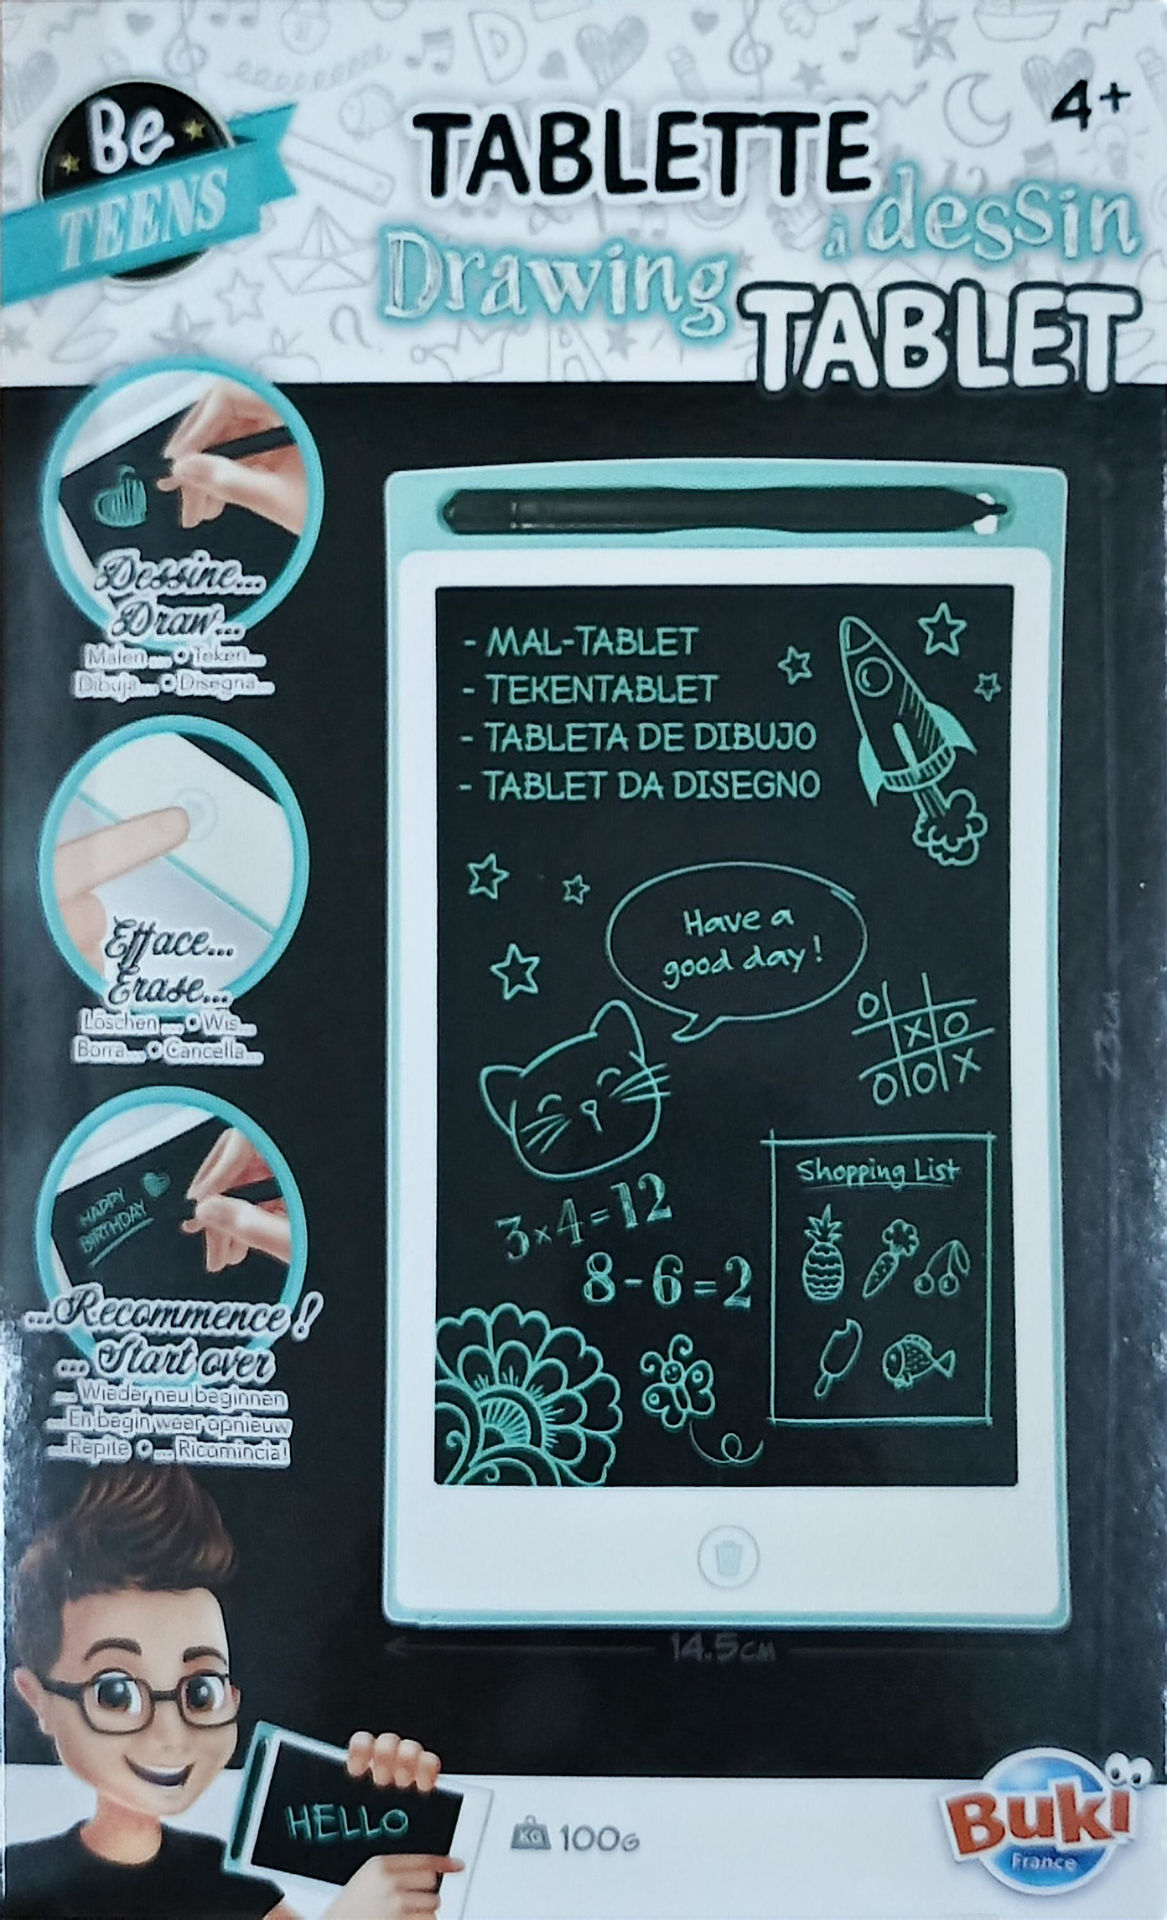 Be
TEENS
4+
TABLETTE
à dessin
Drawing
TABLET
Dessine...
Draw...
Malen... • Teken...
Dibuja... • Disegna...
Efface...
Erase...
Löschen... • Wis...
Borra... • Cancella...
HAPPY
BIRTHDAY
...Recommence !
... Start over
... Wieder neu beginnen
...En begin weer opnieuw
...Repite • ... Ricomincia!
- MAL-TABLET
- TEKENTABLET
- TABLETA DE DIBUJO
- TABLET DA DISEGNO
Have a
good day!
O
X O
O O X
3x4=12
8-6=2
Shopping List
23cm
14.5cm
HELLO
KG 100G
Buki
France